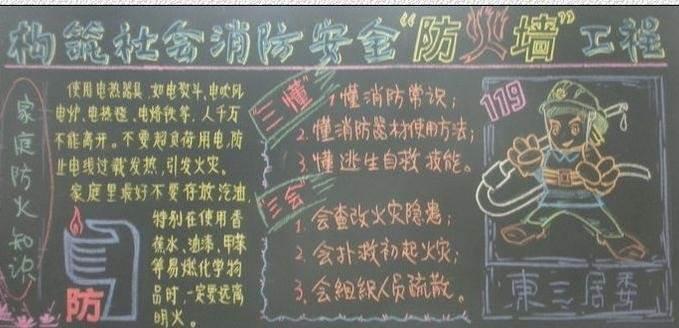 构筑社会消防安全“防火墙”工程
家庭防火知识
使用电热器具,如电熨斗、电吹风
电炉、电热毯、电烙铁等,人千万
不能离开。不要超负荷用电,防
止电线过载发热,引发火灾。
家庭里最好不要存放汽油,
特别在使用香
蕉水、油漆、甲苯
等易燃化学物
品时,一定要远离
明火。
防
“三懂”
1.懂消防常识;
2.懂消防器材使用方法;
3.懂逃生自救技能。
三会
1.会查改火灾隐患;
2.会扑救初起火灾;
3.会组织人员疏散。
119
東三居委